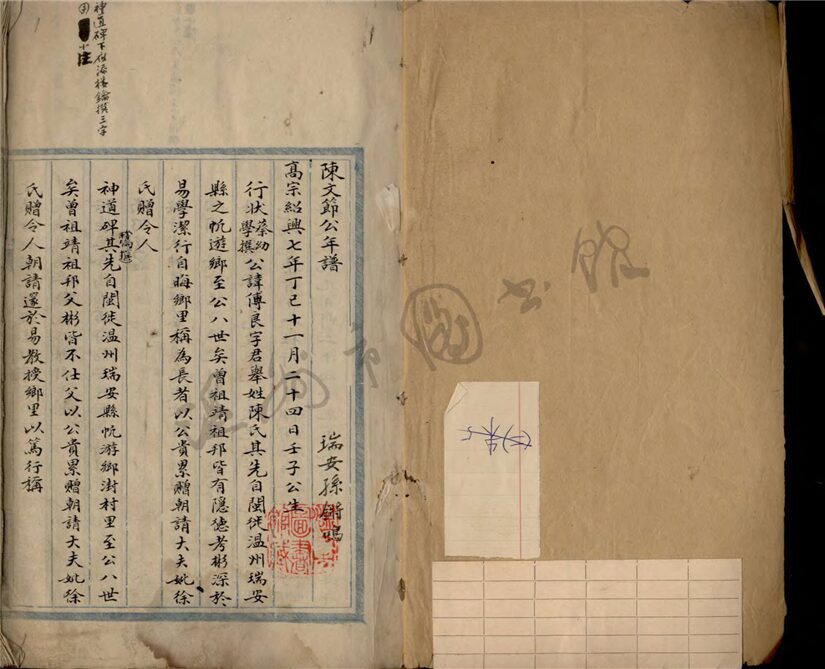 陳文節公年譜
瑞安孫鏘鳴
高宗紹興七年丁巳十一月二十四日壬子公生
行狀蔡幼學撰公諱傅良字君舉姓陳氏其先自閩徙温州瑞安
縣之帆遊鄉至公八世矣曾祖靖祖邦皆有隱德考彬深於
易學潔行自晦鄉里稱為長者以公貴累贈朝請大夫妣徐
氏贈令人
神道碑樓鑰撰其先自閩徙温州瑞安縣帆游鄉澍村里至公八世
矣曾祖靖祖邦父彬皆不仕父以公貴累贈朝請大夫妣徐
氏贈令人朝請邃於易教授鄉里以篤行稱
神道碑下做添樓鑰撰三字
小注
温州市圖書館